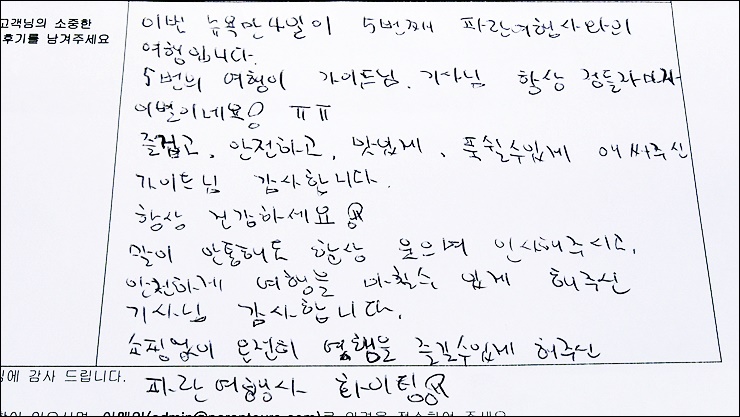 고객님의 소중한
후기를 남겨주세요
이번 뉴욕만4일이 5번째 파란여행사와의
여행입니다.
5번의 여행이 가이드님, 기사님 항상 정들라마자
이별이네요! ㅠㅠ
즐겁고, 안전하고, 맛있게, 푹쉴수있게 애써주신
가이드님 감사합니다.
항상 건강하세요
말이 안통해도 항상 웃으며 인사해주시고,
안전하게 여행을 마칠수 있게 해주신
기사님 감사합니다.
쇼핑없이 온전히 여행을 즐길수있게 해주신
파란여행사 화이팅
에 감사 드립니다.